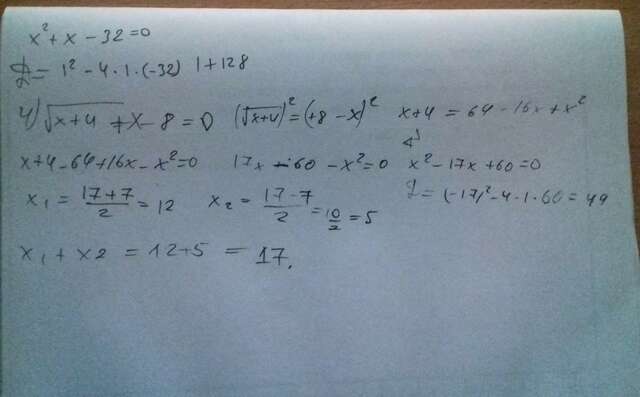 x² + x - 32 = 0
D = 1² - 4 · 1 · (-32) 1 + 128
4) √x+4 + x - 8 = 0 (√x+4)² = (+8 - x)² x+4 = 64 - 16x + x²
x+4 - 64 + 16x - x² = 0 17x - 60 - x² = 0 x² - 17x + 60 = 0
x₁ = 17+7/2 = 12 x₂ = 17-7/2 = 10/2 = 5 D = (-17)² - 4 · 1 · 60 = 49
x₁ + x2 = 12+5 = 17.